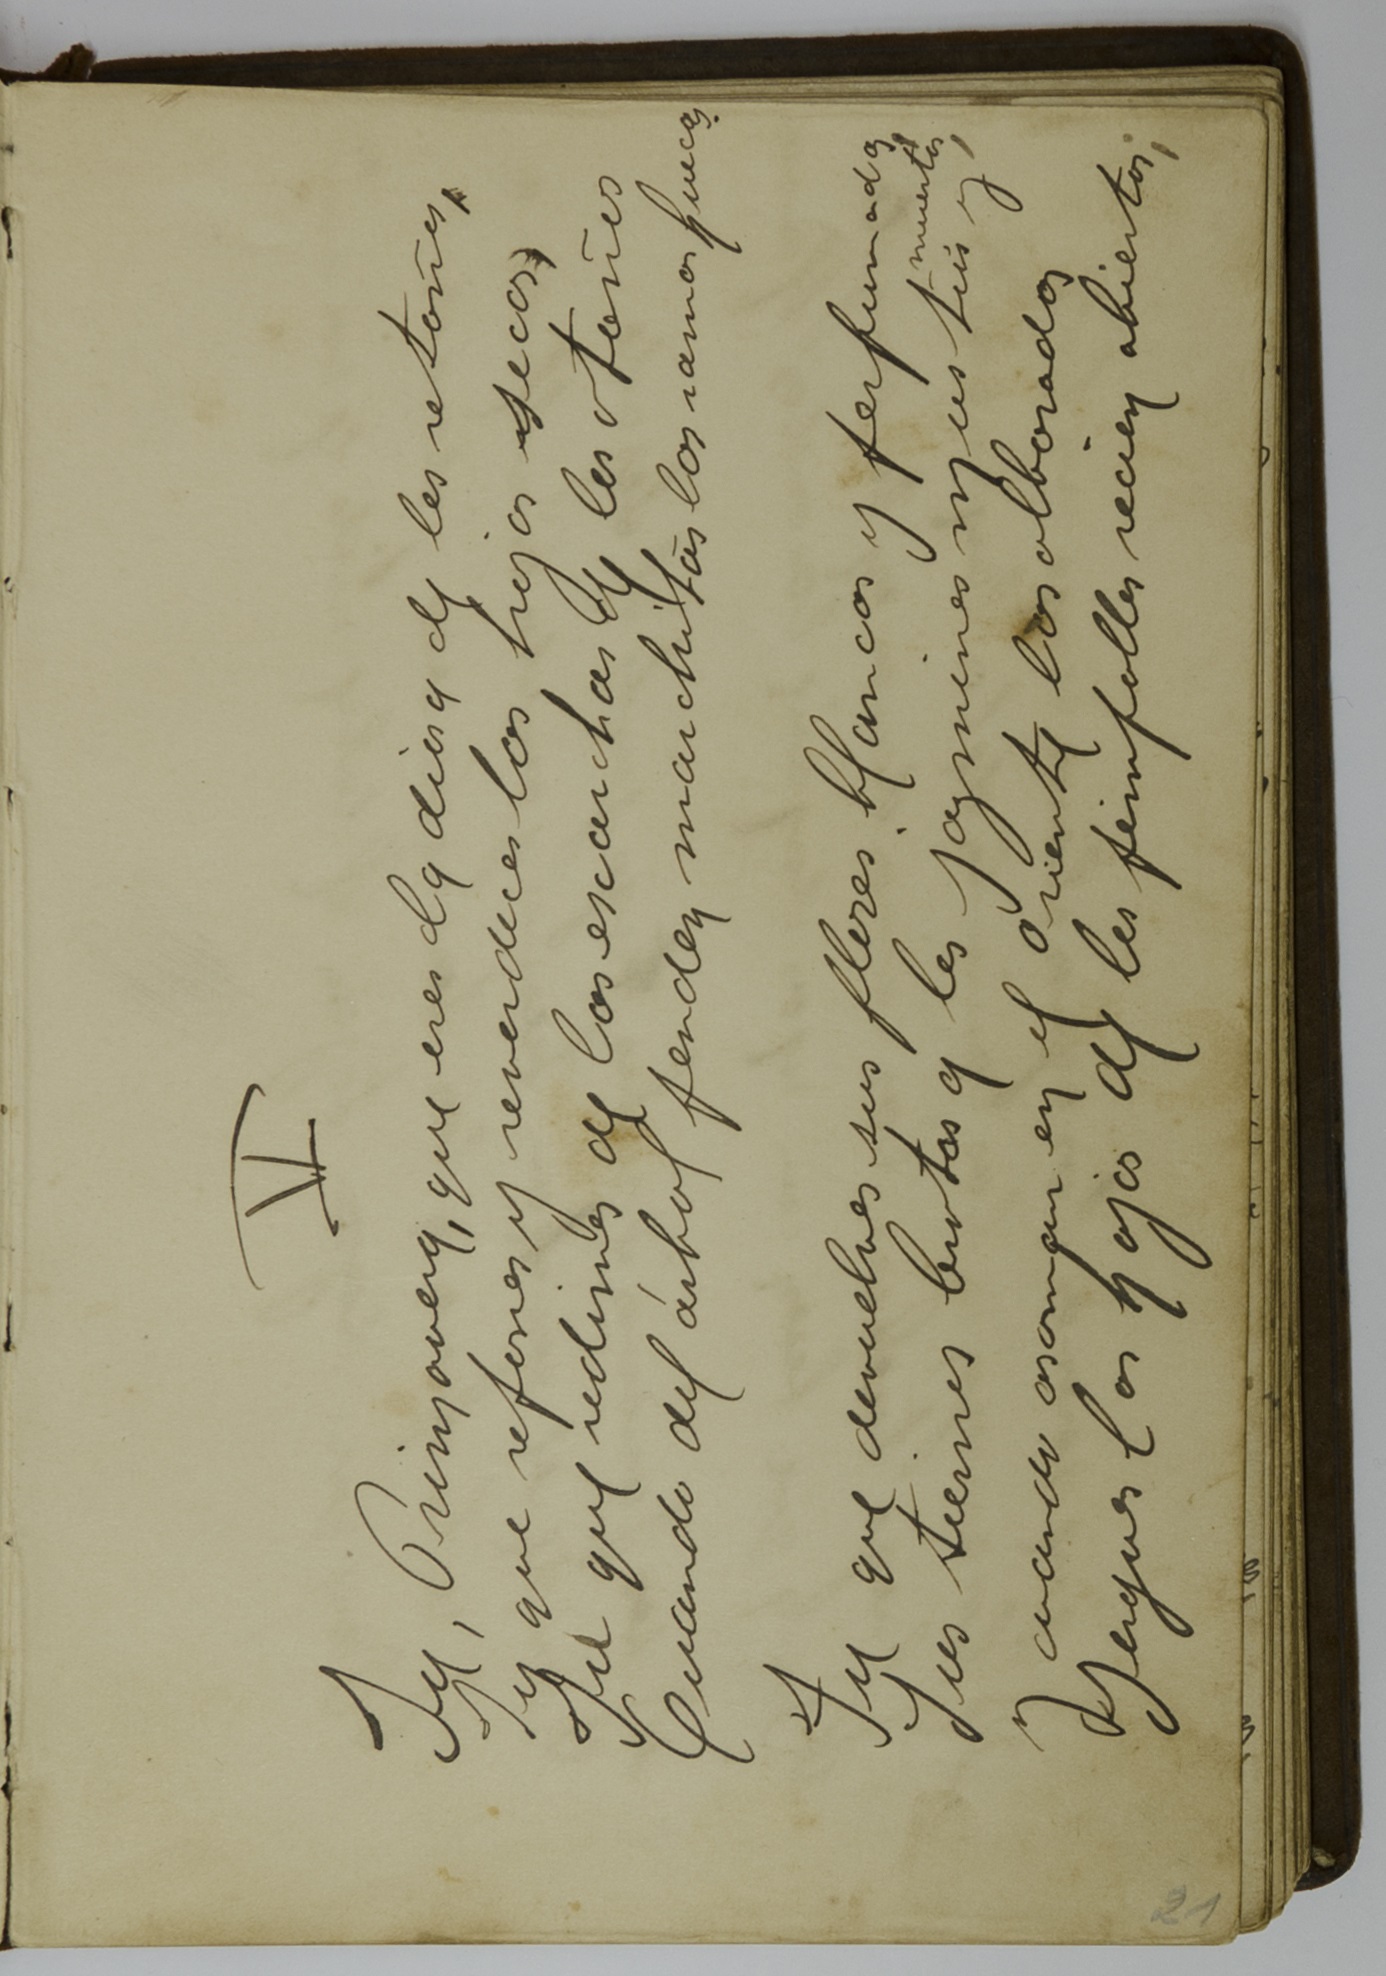 VI
Tu, Primavera, que eres la diosa de los retoños,
Tu que repones y reverdeces las hojas secas,
Tu que redimes de las escarchas de los otoños
Cuando del árbol penden marchitas las ramas huecas.
Tu que devuelves sus flores blancas y perfumadas,
Sus tiernos brotes a los jazmines mustios y muertos,
y cuando asoman en el oriente las alboradas
Yergues las hojas de los pimpollos recien abiertos;
21